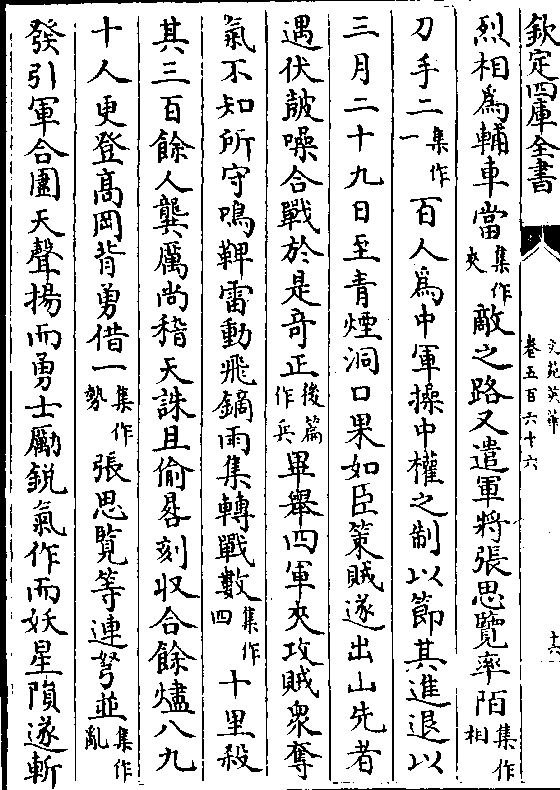 欽定四庫全書
文苑英華
卷五百六十六
十六
烈相爲輔車當集作夾敵之路又遣軍將張思覽率陌集作相
刀手二集作一百人爲中軍操中權之制以節其進退以
三月二十九日至青煙洞口果如臣策賊遂出山先者
遇伏皷噪合戰於是竒正後篇作兵畢舉四軍夾攻賊衆奪
氣不知所守鳴鞞雷動飛鏑雨集轉戰數集作四十里殺
其三百餘人龔厲尚稽天誅且偷晷刻収合餘燼八九
十人更登髙岡背勇借一集作勢張思覽等連弩並集作亂
發引軍合圍天聲揚而勇士勵鋭氣作而妖星隕遂斬